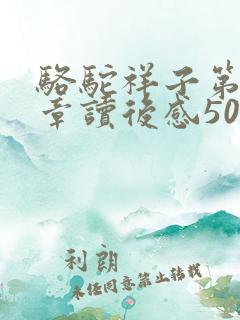 駱駝祥子第
章讀後感50
利朗
未经同意禁止转载